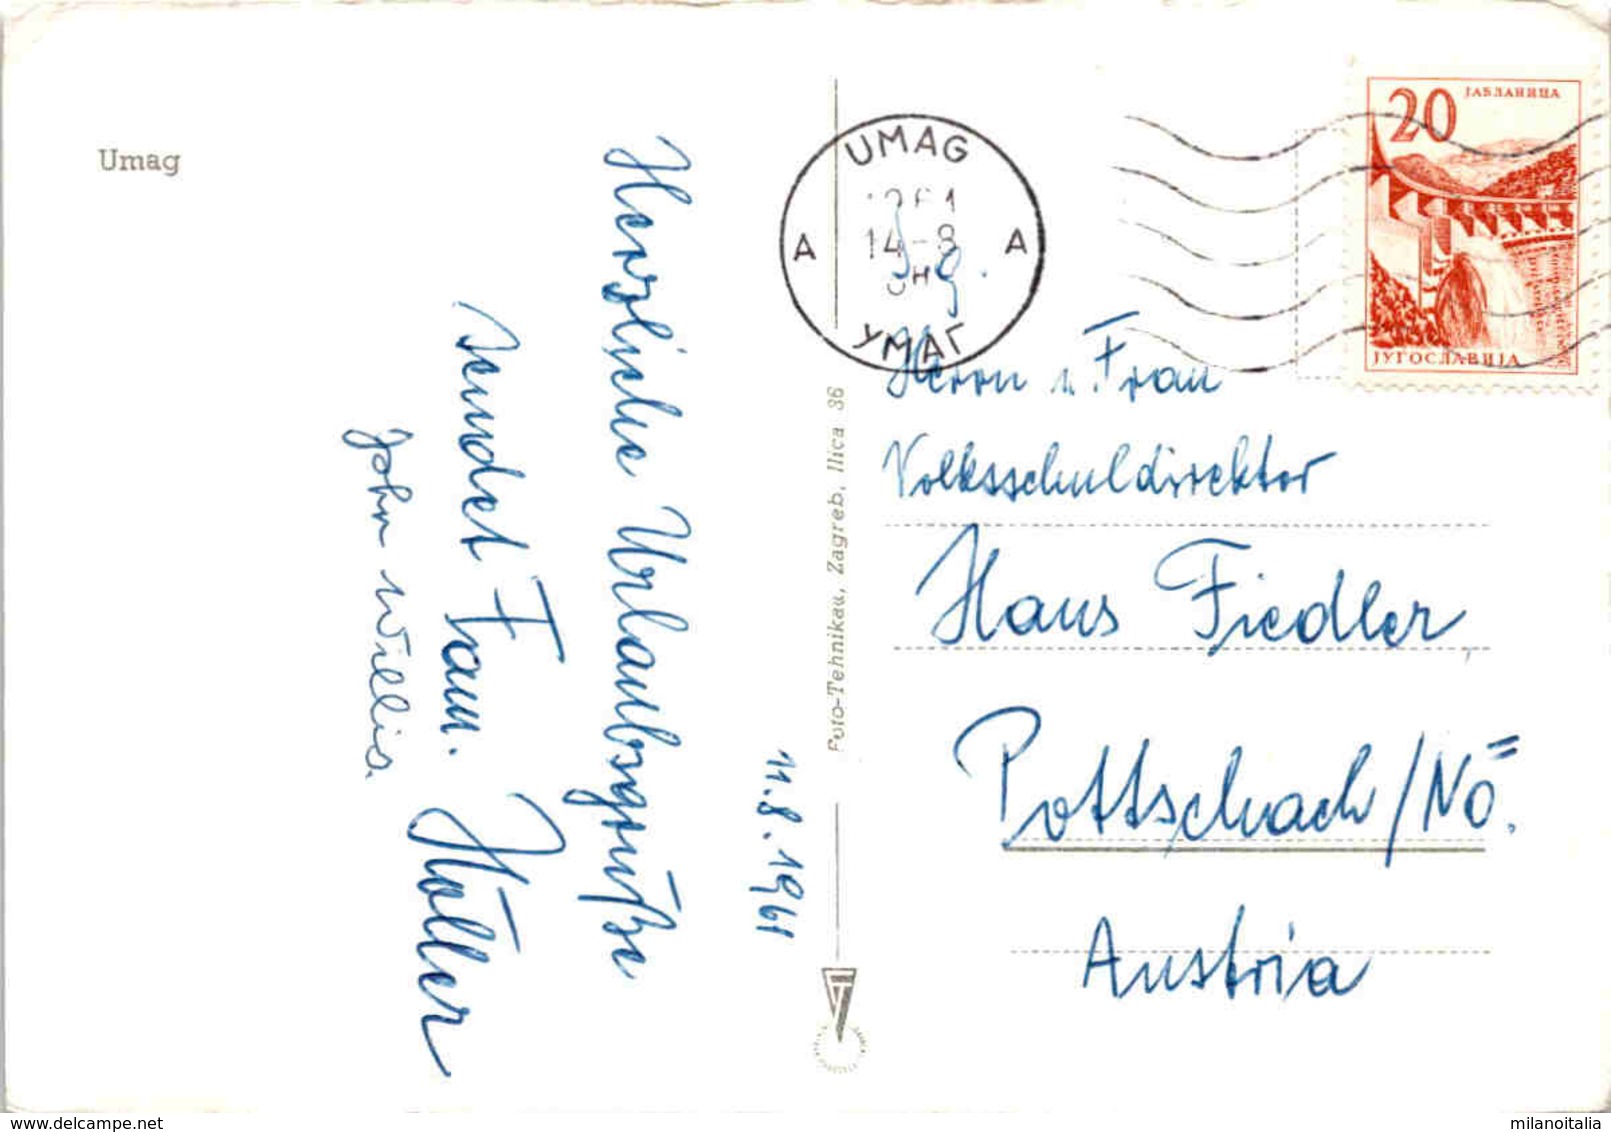 Umag
Herzliche Urlaubsgrüße
sendet Fam. Holler
John Willis.
11.8.1961
Foto-Tehnikau, Zagreb, Ilica 36
UMAG
1961
14-8
A A
УМАГ
20
ЈАБЛАНИЦА
ЈУГОСЛАВИЈА
Herrn u. Frau
Volksschuldirektor
Hans Fiedler
Pottschach/NÖ.
Austria
delcampe.net
milanoitalia